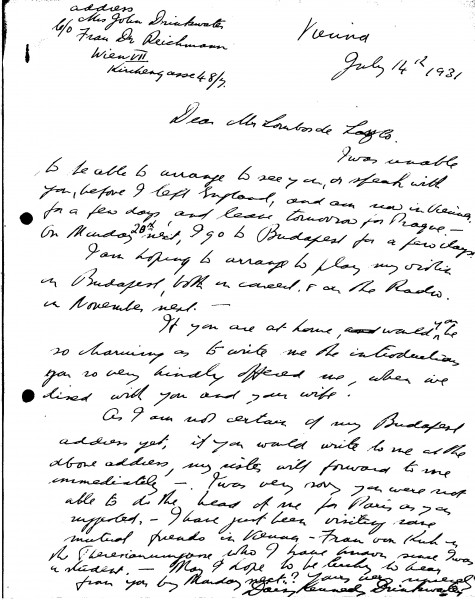 address
Mrs John Drinkwater
c/o Frau Dr Reichmann
Wien VII
Kirchengasse 48/7.
Vienna
July 14th 1931
Dear Mr Lombos de Laszlo.
I was unable
to be able to arrange to see you, or speak with
you, before I left England, and am now in Vienna
for a few days, and leave tomorrow for Prague. —
On Monday 20th next, I go to Budapest for a few days.
I am hoping to arrange to play my violin
in Budapest, both in concert & on the Radio.
in November next. —
If you are at home, would you be
so charming as to write me the introductions
you so very kindly offered me, when we
dined with you and your wife.
As I am not certain of my Budapest
address yet, if you would write to me at the
above address, my sister will forward to me
immediately —. I was very sorry you were not
able to do the head of me for Paris as you
suggested. — I have just been visiting some
mutual friends in Vienna — Frau von
the who I have known since I was
a student. — May I hope to be lucky to hear
from you by Monday next? Yours very sincerely
Daisy Kennedy Drinkwater